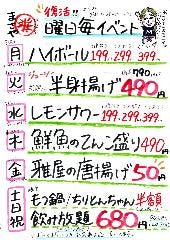 復活!!
曜日毎イベント
月 ハイボール 199.299.399.
火 ジューシー 半身揚げ 790 490円
水 レモンサワー 199.299.399.
木 鮮魚のてんこ盛り 490円
金 雅屋の唐揚げ 50円
土日祝 もつ鍋/ちりとんちゃん 半額
飲み放題 680円